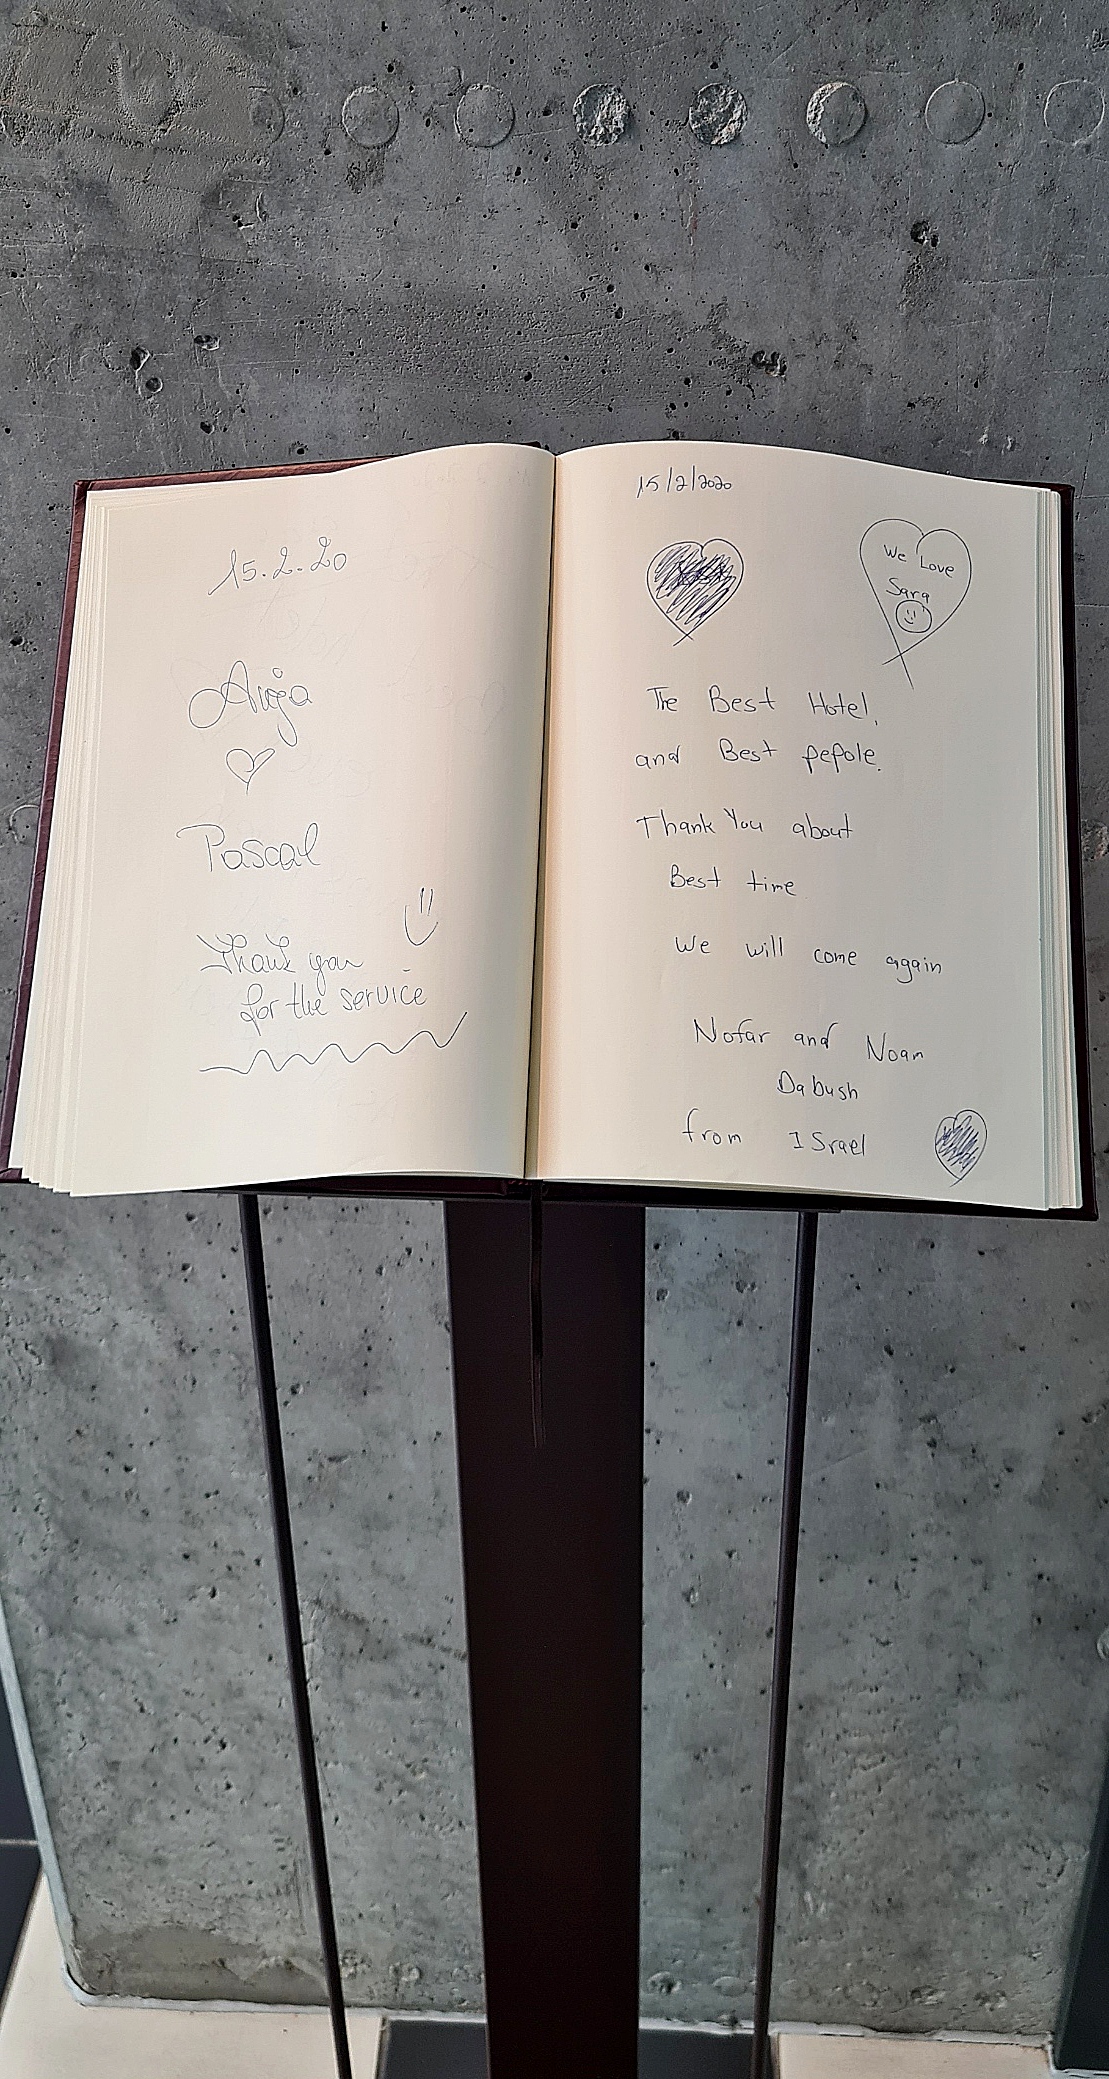 15.2.20
Anja
Pascal
Thank you
for the service
15/2/2020
We Love
Sara
The Best Hotel,
and Best pepole.
Thank You about
Best time
We will come again
Nofar and Noam
Dabush
from ISrael